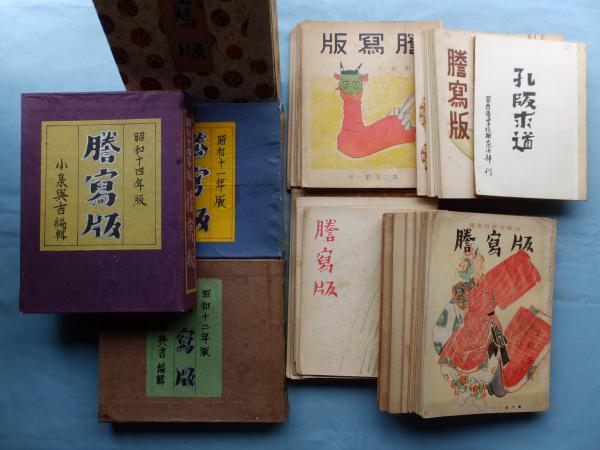 寫版
昭和十四年版
謄寫版
小泉與吉編輯
昭和十四年版 謄寫版
昭和十一年版
謄寫版
昭和十二年版
寫版
與吉編輯
版寫謄
第三年第一号
謄寫版
孔版求道
刊
謄寫版
謄寫版